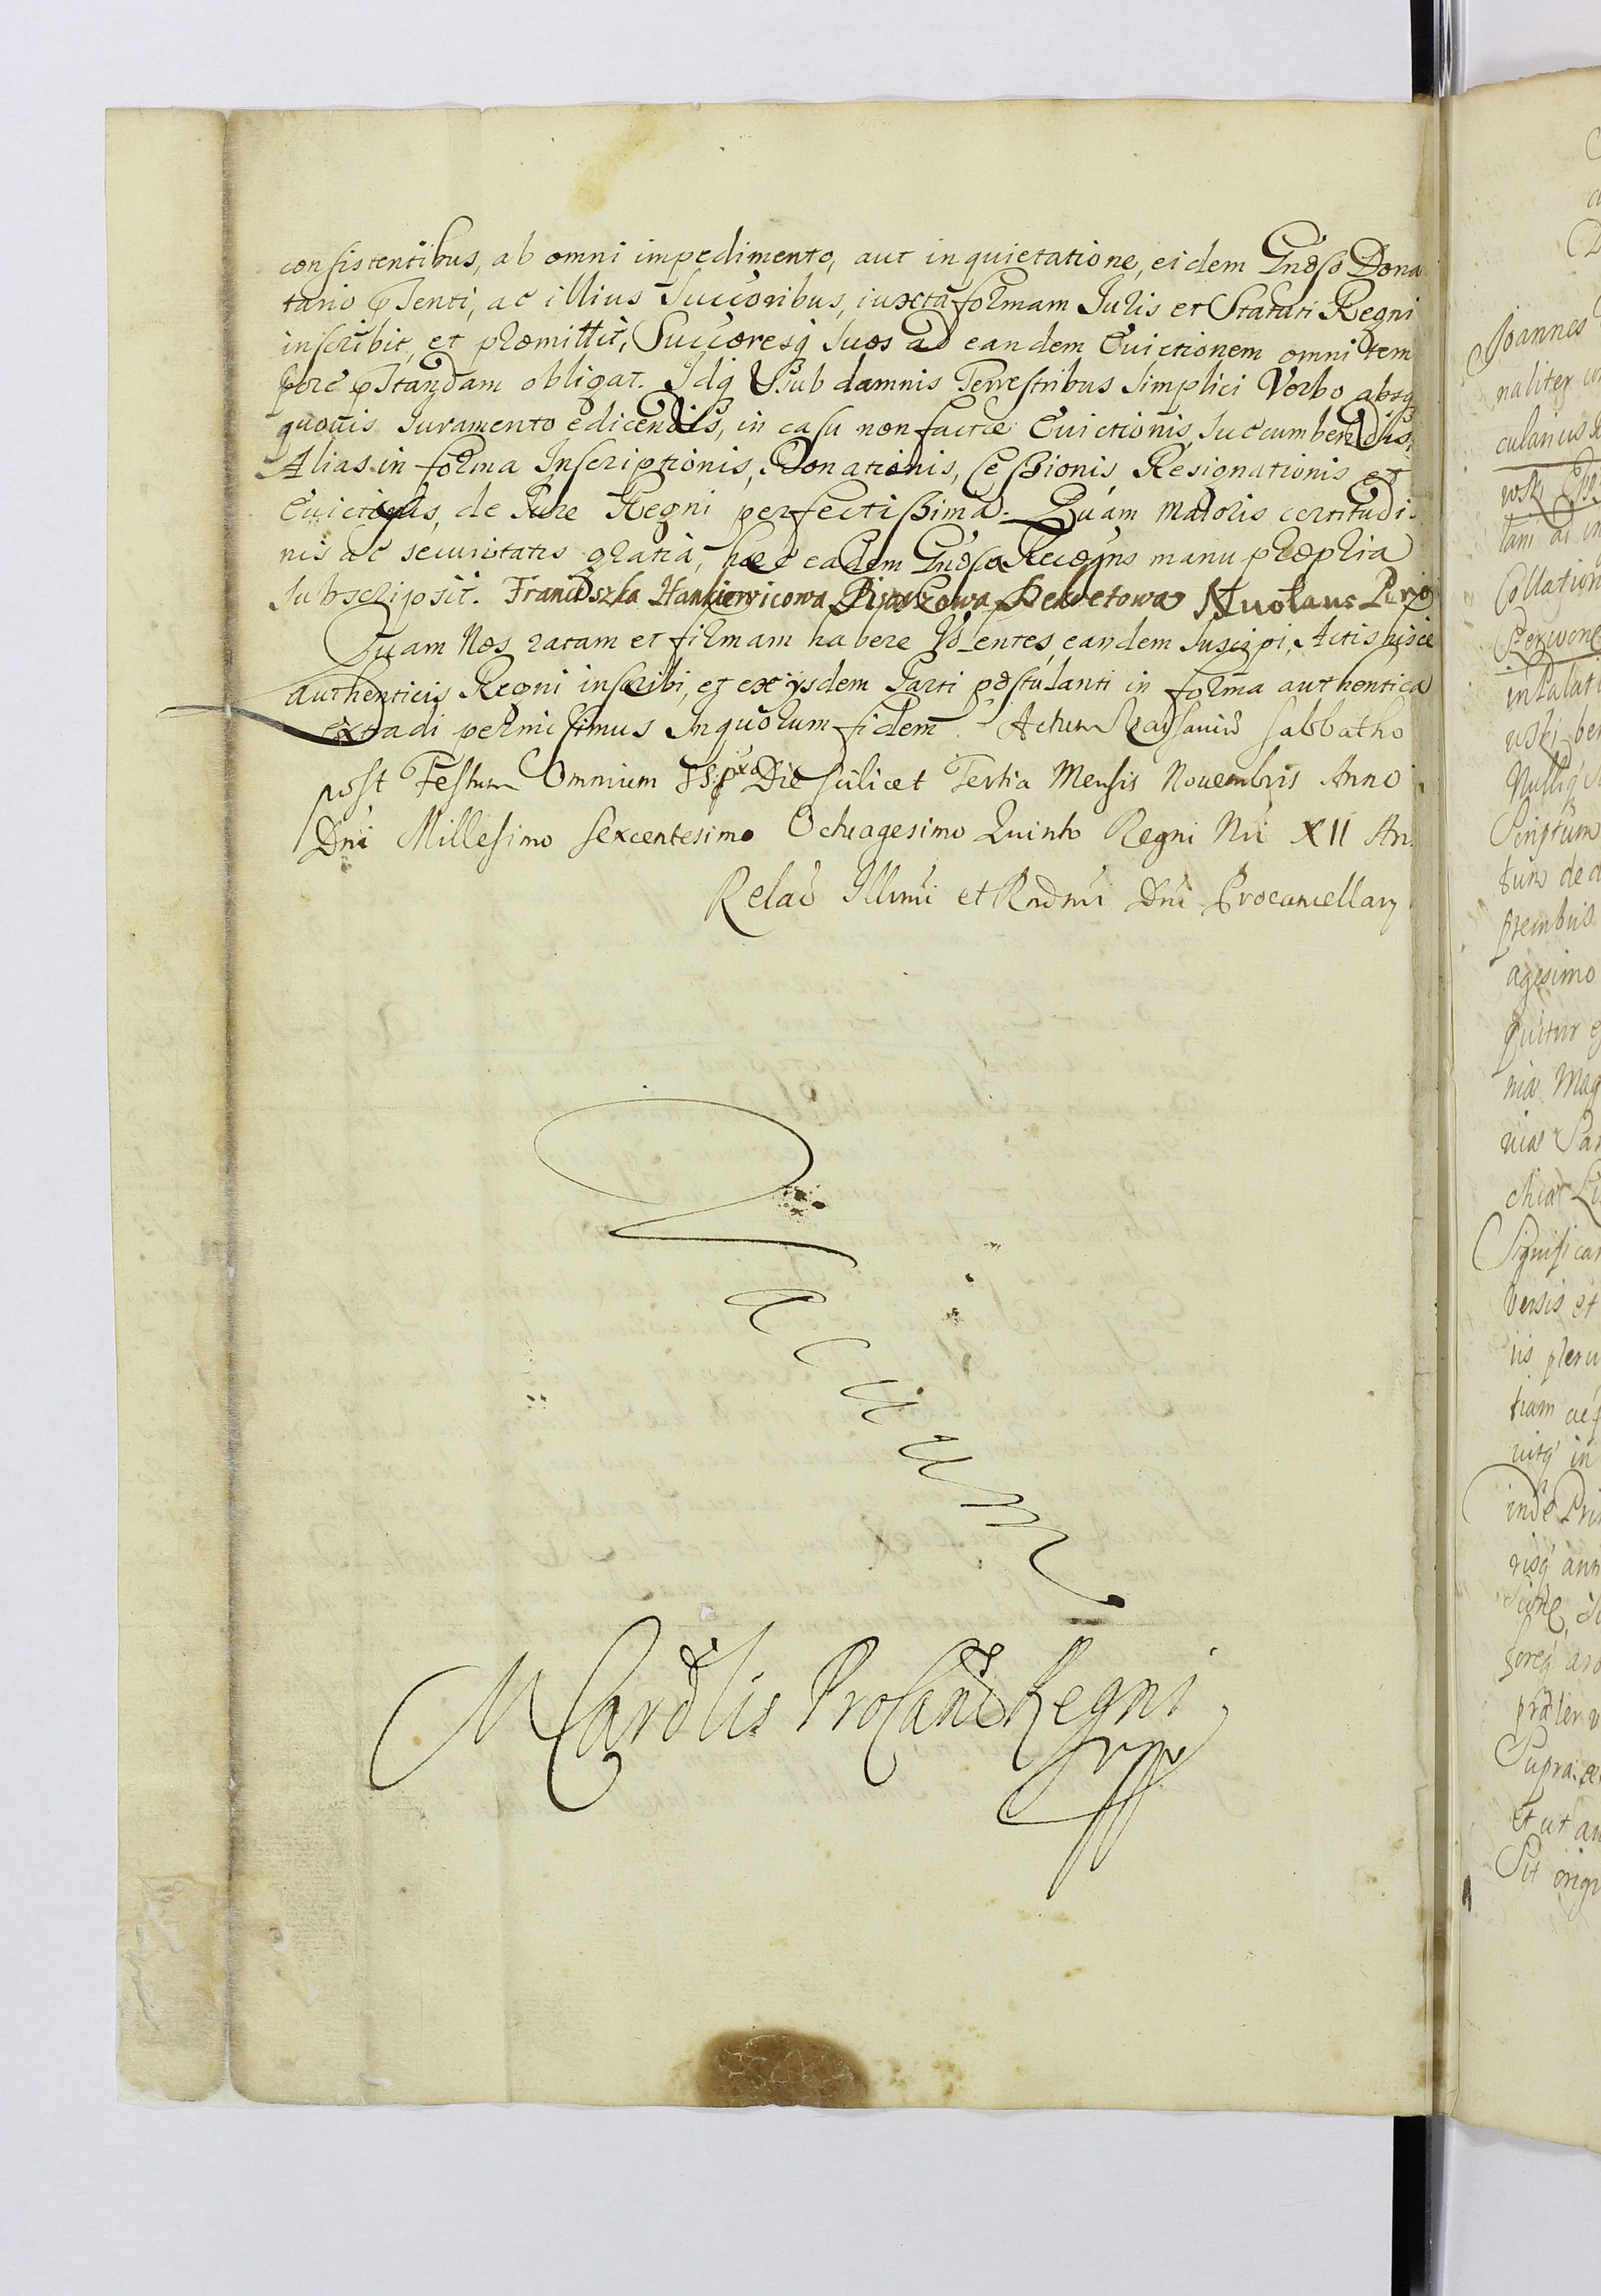 consistentibus, ab omni impedimento, aut inquietatione, eidem Gnoso Dona
tario pñsenti, ac illius Succoribus, iuxta formam Juris et Statuti Regni
inscribit, et promittit, Succoresq suos ad eandem Evictionem omni tem
pore pstandam obligat. Idq sub damnis Terrestribus simplici Verbo absq
quovis Juramento edicendis, in casu non factæ Evictionis, succumbendis,
Alias in forma Inscriptionis, Donationis, Cessionis, Resignationis et
Evictionis, de Jure Regni perfectissima. Quam maioris certitudi
nis ac securitatis gratia, hæc eadem Gnosa Recogns manu propria
subscripsit. Franciszka Hankiewicowa Pisarzowa Dekretowa
Quam Nos ratam et firmam habere volentes, eandem suscipi, Actis hisce
authenticis Regni inscribi, et ex ijsdem Parti postulanti in forma authentica
extradi permisimus In quorum fidem. Actum Varsaviæ Sabbatho
post Festum Omnium SS. Die scilicet Tertia Mensis Novembris Anno
Dni Millesimo Sexcentesimo Octuagesimo Quinto Regni Nri XII An.
Relaō Illmi et Rndmi Dni Procancellary
Vacuum
M Cardlis ProCanc Regni
Joannes
naliter
culari us
Collation
in Palati
Scriptum
agesimo
nia Mag
Significa
versis et
in
inde Pri
risq
præter
Supra
et ut an
Sit origi